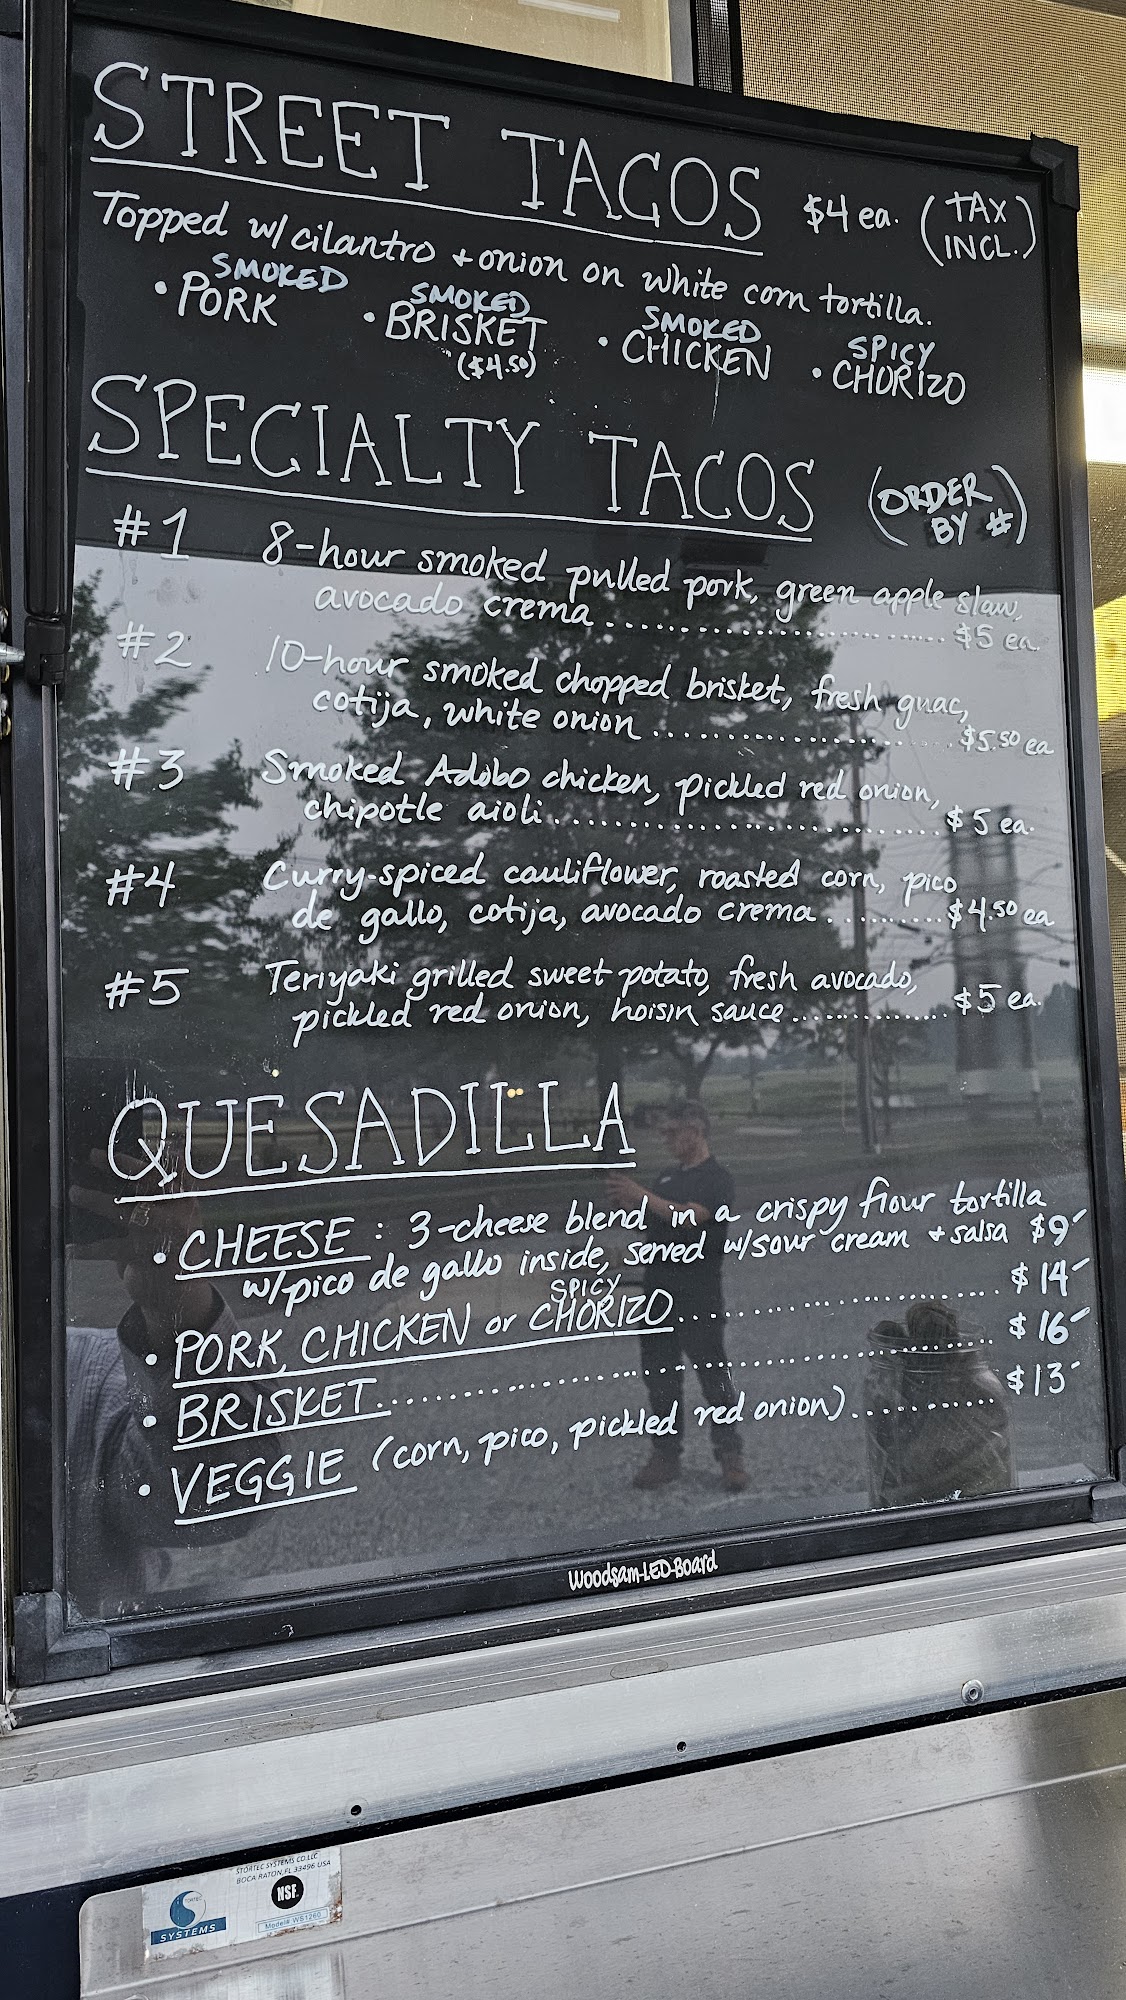 STREET TACOS $4 ea. (TAX INCL.)
Topped w/ cilantro + onion on white corn tortilla.
• SMOKED PORK • SMOKED BRISKET ($4.50) • SMOKED CHICKEN • SPICY CHORIZO
SPECIALTY TACOS (ORDER BY #)
#1 8-hour smoked pulled pork, green apple slaw,
avocado crema ........................ $5 ea.
#2 10-hour smoked chopped brisket, fresh guac,
cotija, white onion ........................ $5.50 ea
#3 Smoked Adobo chicken, pickled red onion,
chipotle aioli ........................ $5 ea.
#4 Curry-spiced cauliflower, roasted corn, pico
de gallo, cotija, avocado crema .......... $4.50 ea
#5 Teriyaki grilled sweet potato, fresh avocado,
pickled red onion, hoisin sauce ............... $5 ea.
QUESADILLA
• CHEESE: 3-cheese blend in a crispy flour tortilla
w/pico de gallo inside, served w/sour cream + salsa $9
• PORK, CHICKEN or SPICY CHORIZO ........................ $14
• BRISKET ........................ $16
• VEGGIE (corn, pico, pickled red onion) ............ $13
Woodsam-LED-Board
STORTEC SYSTEMS CO.LLC
BOCA RATON,FL 33496 USA
NSF.
STORTEC
SYSTEMS
Model#:WS1260